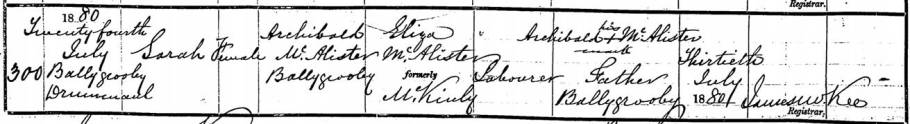 Registrar.
1880
Twenty fourth
July
300 Ballygrooby
Drummaul
Sarah
Female
Archibald
McAlister
Ballygrooby
Eliza
McAlister
formerly
McKinly
"
Labourer
Archibald his x mark McAlister
Father
Ballygrooby
Thirtieth
July
1880
James W. Kee
Registrar.